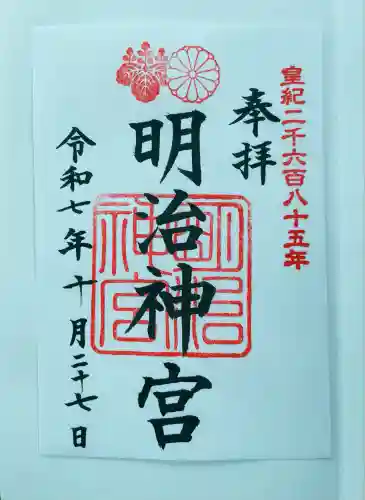 皇紀二千六百八十五年
奉拝
明治神宮
明治神宮
令和七年十月二十七日